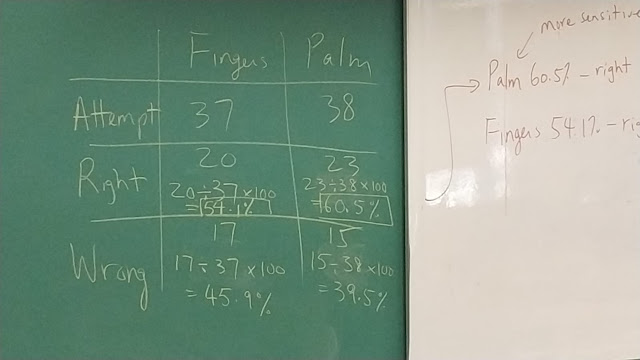 Fingers Palm
Attempt 37 38
Right 20 23
20÷37×100 23÷38×100
=54.1% =60.5%
Wrong 17 15
17÷37×100 15÷38×100
=45.9% =39.5%
more sensitive
Palm 60.5% – right
Fingers 54.1% – rig